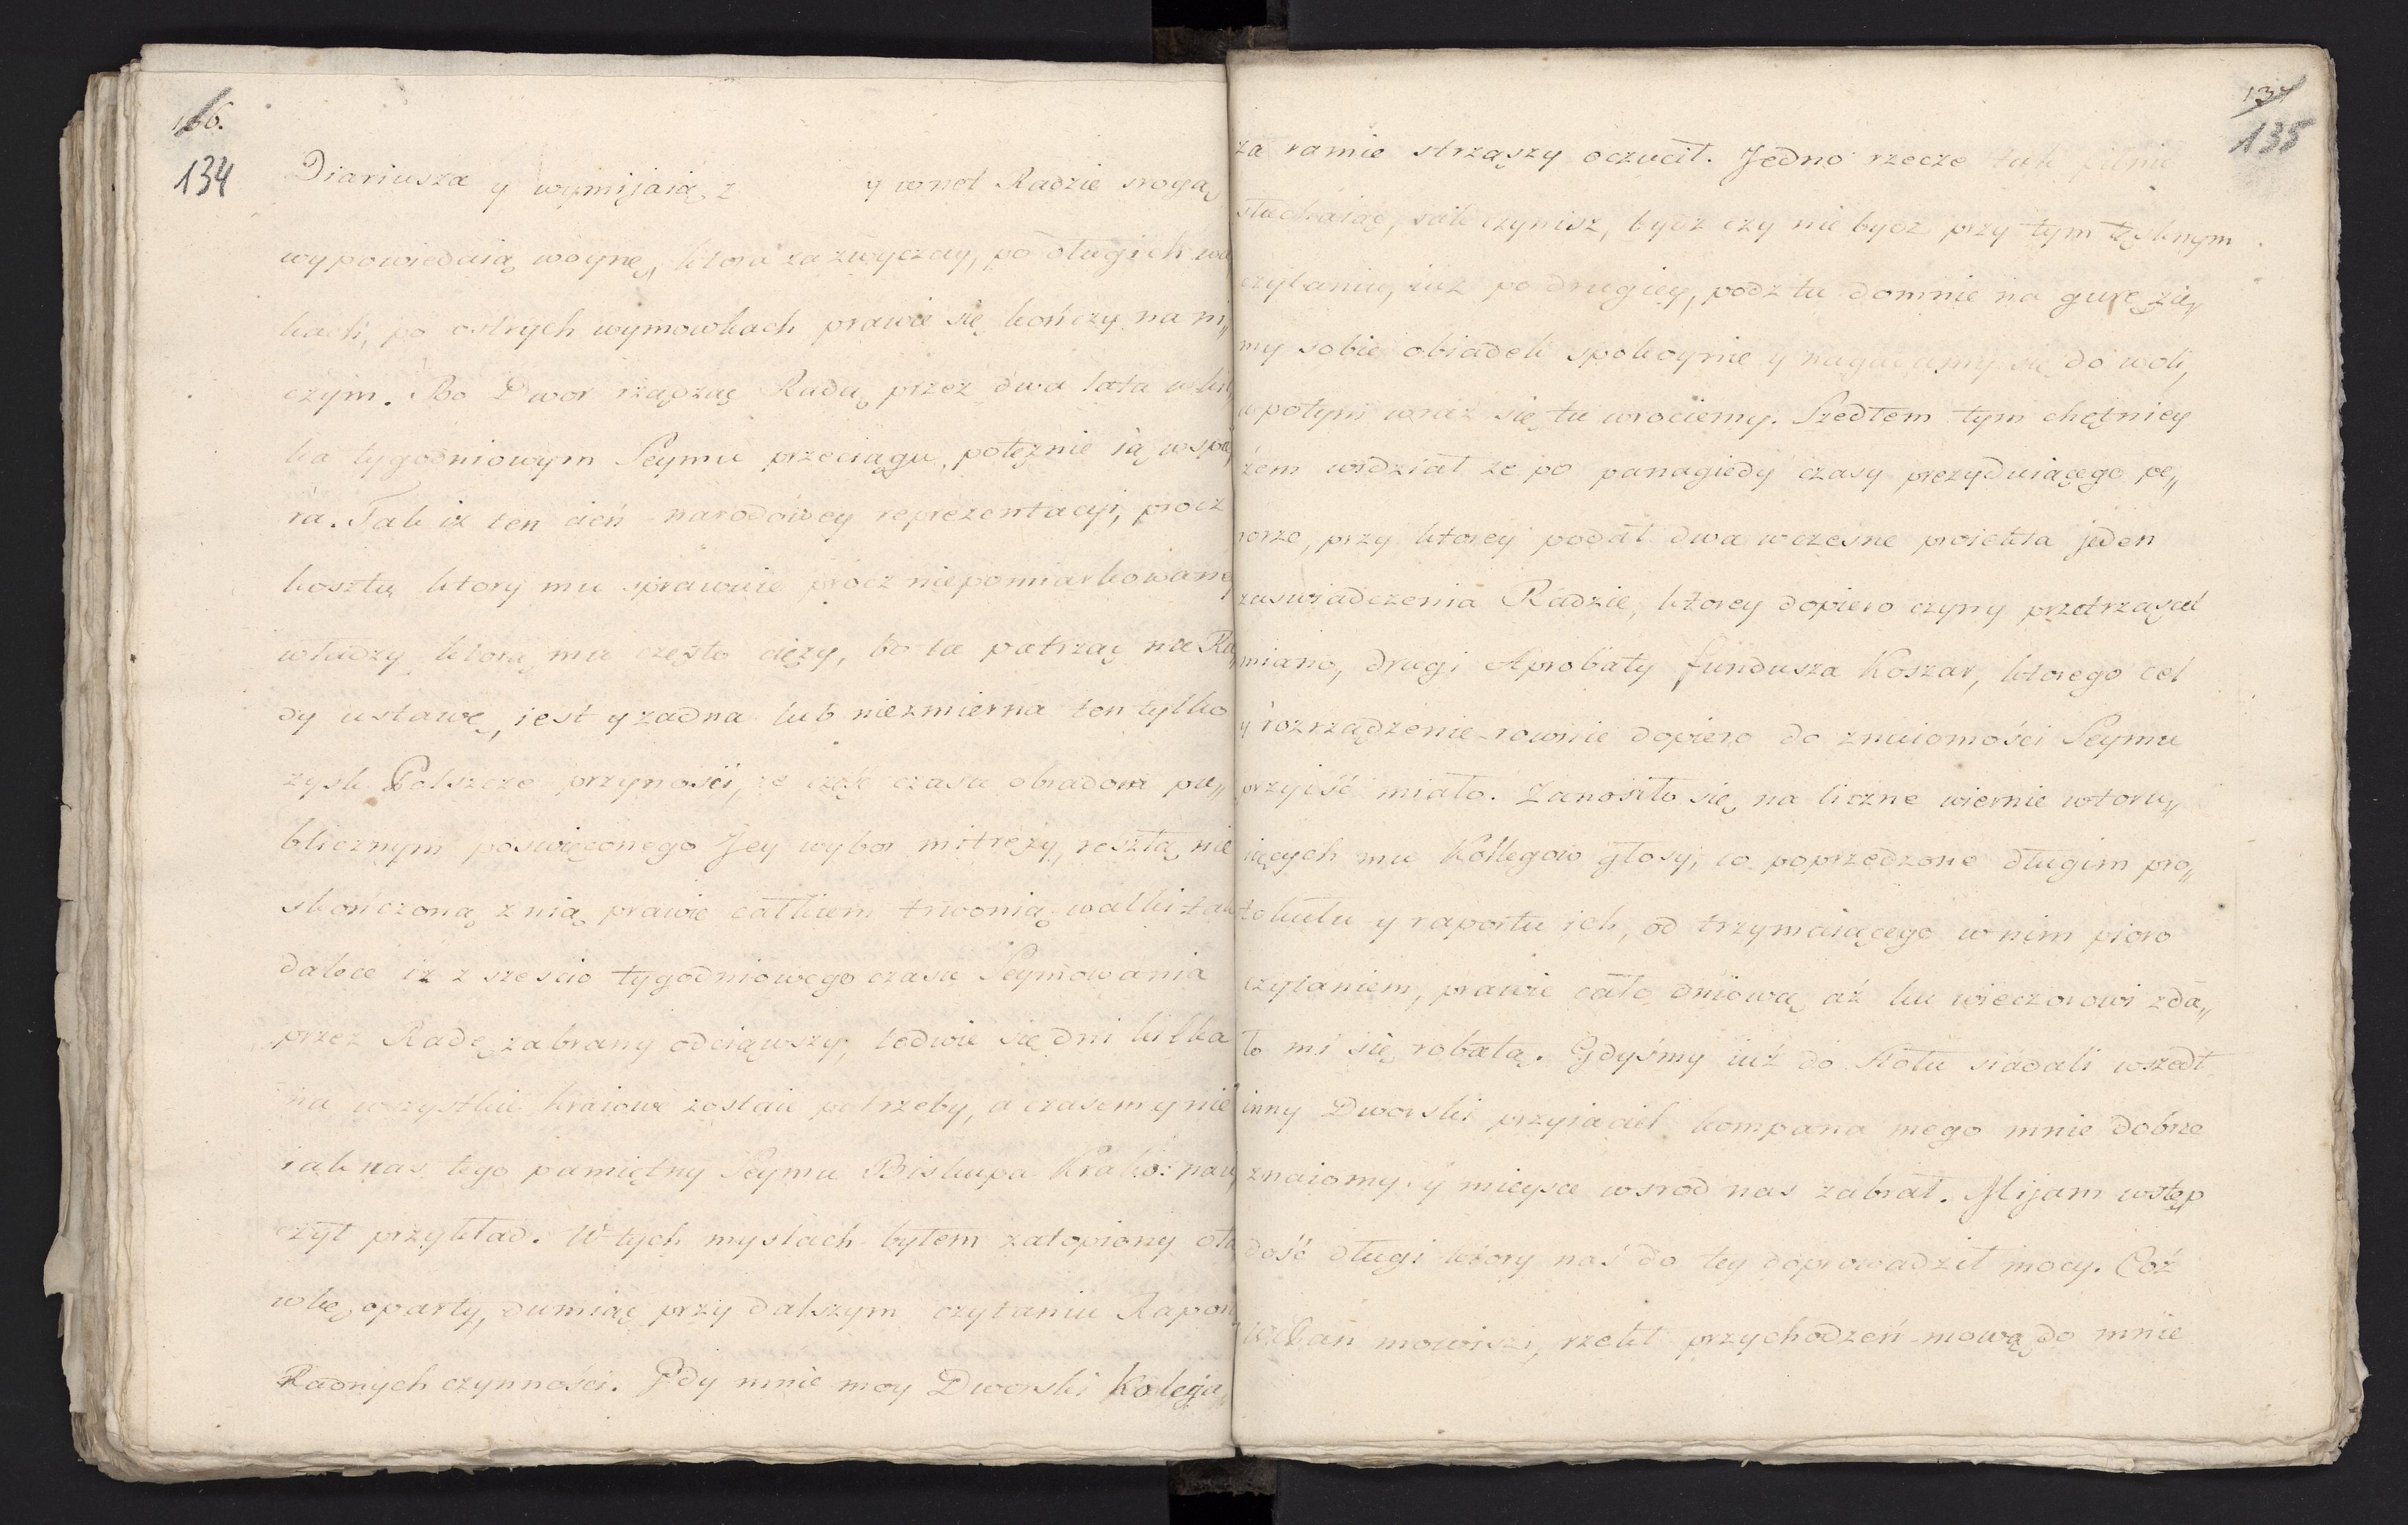 166.
134
Diariusza y wymijaią z y wnet Radzie srogą
wypowiedaią woynę, ktora zazwyczay, po długich wal
kach, po ostrych wymowkach prawie się kończy na ni„
czym. Bo Dwor rządząc Radą przez dwa lata w kil
ka tygodniowym Seymu przeciągu, potężnie ią wspie
ra. Tak iż ten cień narodowey reprezentacyi, procz
kosztu ktory mu sprawuie procz niepomiarkowaney
władzy ktora mu często cięży, bo ta patrząc na Ra
dy ustawę, iest y żadna lub niezmierna ten tylko
zysk Polszcze przynosi, że część czasu obradom pu„
blicznym poswięconego Jey wybor mitręży, resztę nie
skończoną z nią prawie całkiem trwonią walki tak
dalece iż z sześcio tygodniowego czasu Seymowania
przez Radę zabrany odciąwszy, ledwie się dni kilka
na wszystkie kraiowe zostaie potrzeby, a czasem y nie
iak nas tego pamiętny Seymu Biskupa Krako: nau„
czył przykład. W tych myslach byłem zatopiony oło
wkę oparty, dumiąc przy dalszym czytaniu Raportu
Radnych czynności. Gdy mnie moy Dworski Kolega,
134
135
za ramie strząszy oczucił. Jedno rzecze tak pilnie
słuchaiąc, sale czynisz, bydz czy nie bydz przy tym tęsknym
czytaniu, iuż po drugiey, podz tu do mnie na gurę zie„
my sobie obiadek spokoynie y nagadamy się do woli,
a potym wraz się tu wrociemy. Szedłem tym chętniey
żem widział ze po panagiedy czasy prezyduiącego pe„
rorze, przy ktorey podał dwa wczesne proiekta jeden
zaswiadczenia Radzie, ktorey dopiero czyny przetrząsać
miano, drugi Aprobaty funduszu Koszar, ktorego cel
y rozrządzenie rownie dopiero do znaiomości Seymu
przyiść miało. Zanosiło się na liczne wiernie wtoru„
iących mu Kollegow głosy, co poprzedzone długim pro„
tokułu y raportu ich, od trzymaiącego w nim pioro
czytaniem, prawie całą dniową aż ku wieczorowi zda„
ło mi się robotą. Gdyśmy iuż do stołu siadali wszedł
inny Dworski przyiaciel kompana mego mnie dobrze
znaiomy y mieysce wsrod nas zabrał. Mijam wstęp
dość długi ktory nas do tey doprowadził mocy. Coż
WPan mowisz, rzekł przychodzeń mową do mnie